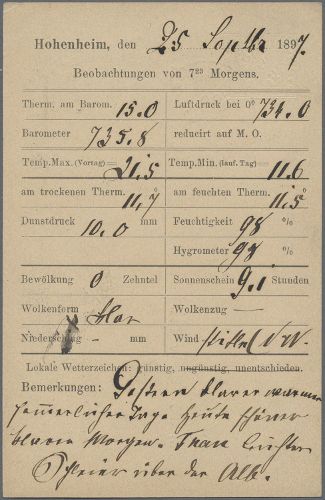 Hohenheim, den 25 Septbr 1897.
Beobachtungen von 7²³ Morgens.
Therm. am Barom. 15.0 Luftdruck bei 0° 734.0
Barometer 735.8 reducirt auf M. O.
Temp.Max. (Vortag) = 21,5 Temp.Min. (lauf. Tag) = 11.6
am trockenen Therm. 11,7 am feuchten Therm. 11,5
Dunstdruck 10.0 mm Feuchtigkeit 98 %
Hygrometer 98 %
Bewölkung 0 Zehntel Sonnenschein 9.1 Stunden
Wolkenform klar Wolkenzug —
Niederschlag - mm Wind still
Lokale Wetterzeichen: günstig, ungünstig, unentschieden.
Bemerkungen: Gestern klarer warmer
sommerlicher Tag. Heute schöner
klarer Morgen. Thau leichter
Schleier über der Alb.